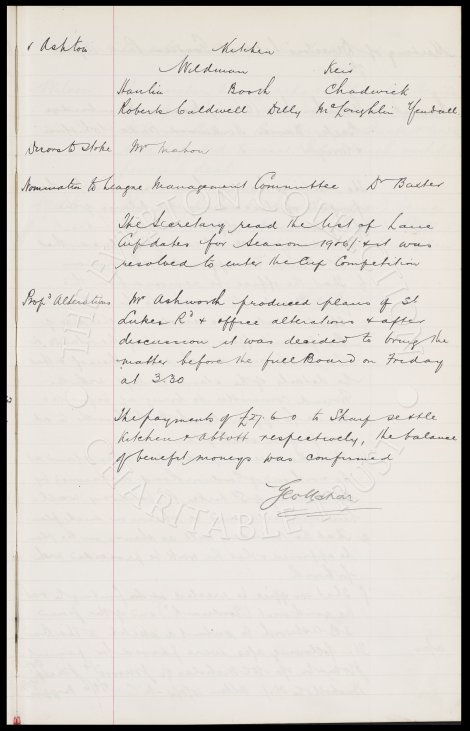 v Ashton Kitchen
Wildman Keir
Hanlin Booth Chadwick
Roberts Caldwell Dilly McLoughlin Yendall
Direns to Stoke Mr Mahon
Nomination to League Management Committee Dr Baxter
The Secretary read the list of Lanc
Cup dates for Season 1906/7 & it was
resolved to enter the Cup Competition
Propd Alterations Mr Ashworth produced plans of St
Lukes Rd & office alterations & after
discussion it was decided to bring the
matter before the full Board on Friday
at 3.30
The payments of £27. 6. 0 to Sharp Settle
Kitchen & Abbott respectively, the balance
of benefit moneys was confirmed
Geo Mahon
THE EVERTON COLLECTION
CHARITABLE TRUST